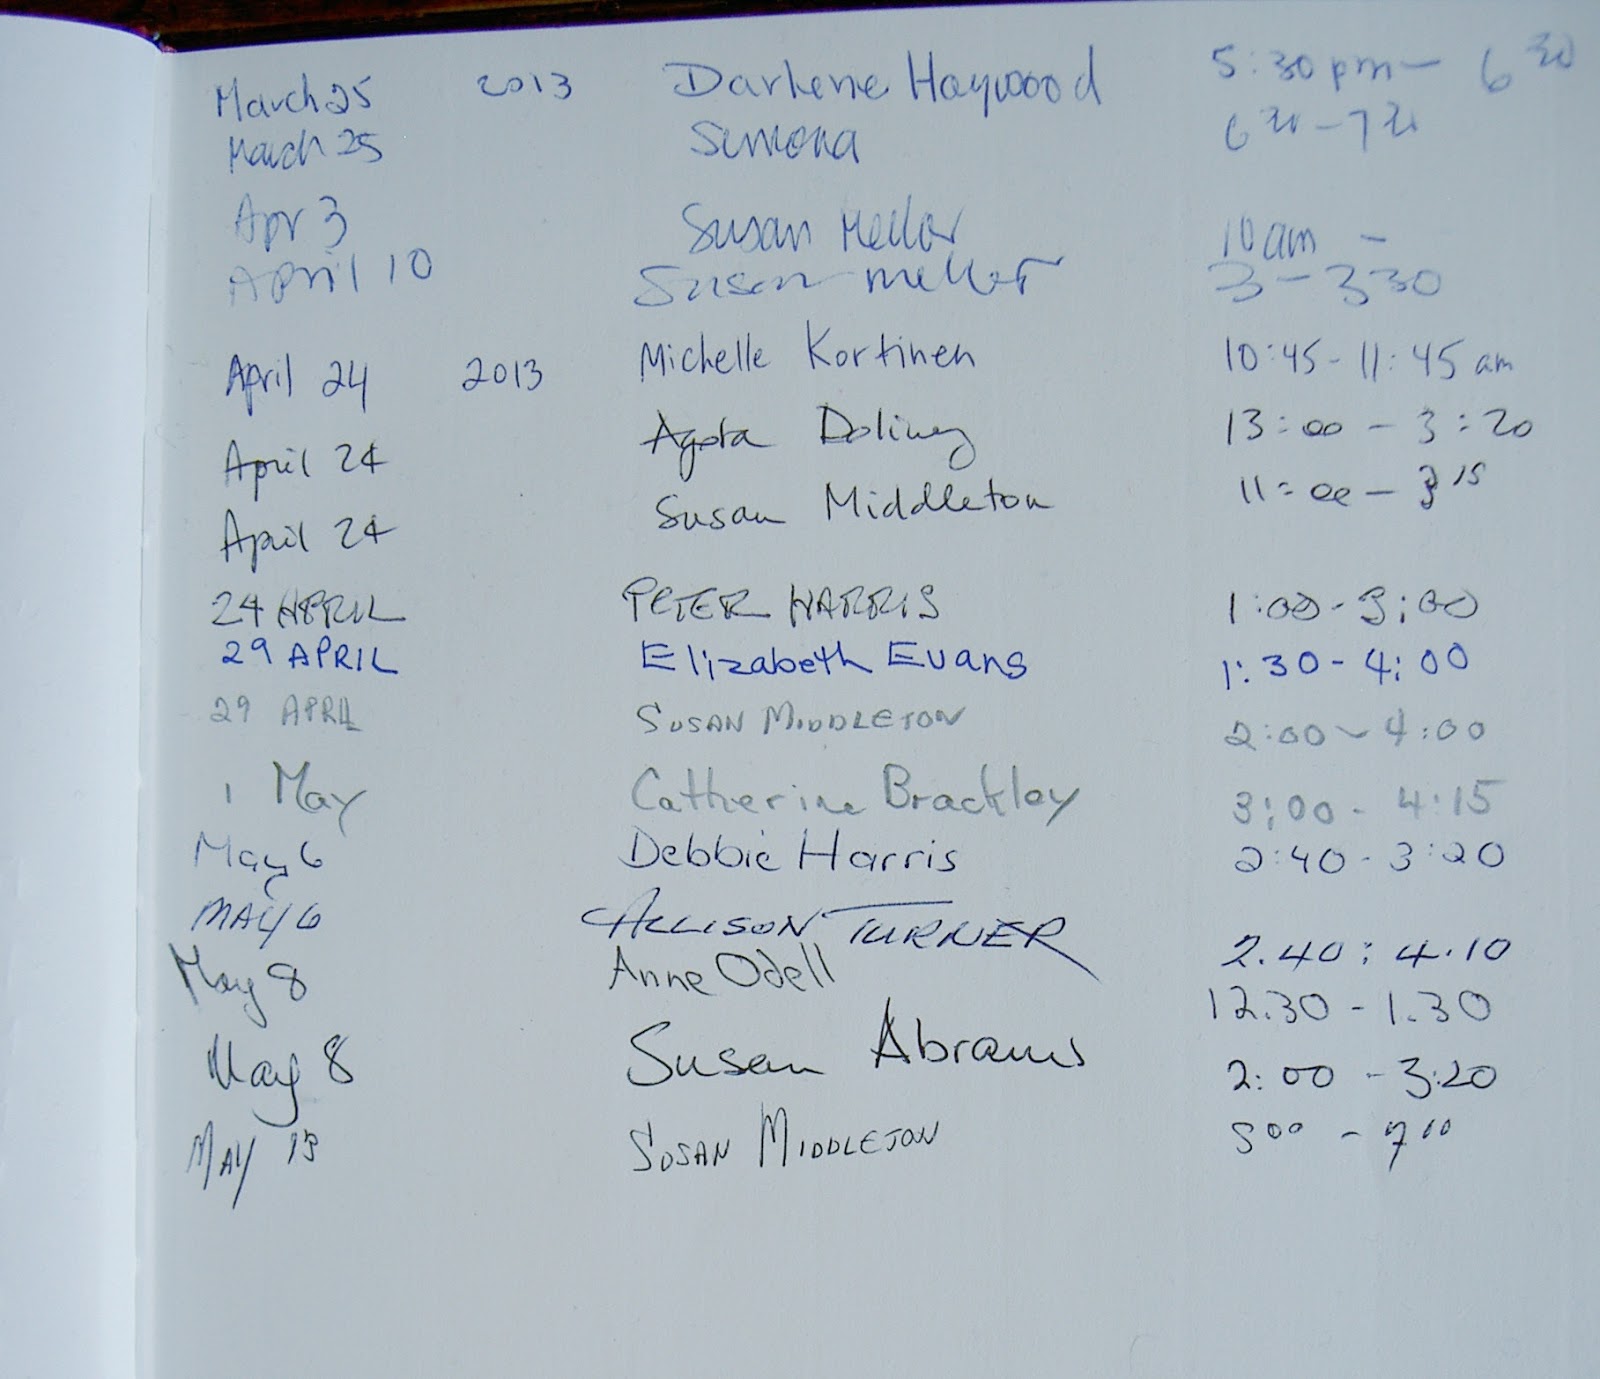 March 25 2013 Darlene Haywood 5:30pm - 6 30
March 25 Simona 6 30 - 7 30
Apr 3 Susan Mellor 10am -
April 10 Susan Mellor 3 - 3 30
April 24 2013 Michelle Kortinen 10:45 - 11:45 am
April 24 Agota 13:00 - 3:20
April 24 Susan Middleton 11:00 - 3 15
24 APRIL PETER HARRIS 1:00 - 3:00
29 APRIL Elizabeth Evans 1:30 - 4:00
29 APRIL SUSAN MIDDLETON 2:00 - 4:00
1 May Catherine Brackley 3:00 - 4:15
May 6 Debbie Harris 2:40 - 3:20
MAY 6 ALLISON TURNER 2.40 : 4.10
May 8 Anne Odell 12.30 - 1.30
May 8 Susan Abrams 2:00 - 3:20
MAY SUSAN MIDDLETON 5 00 - 7 10